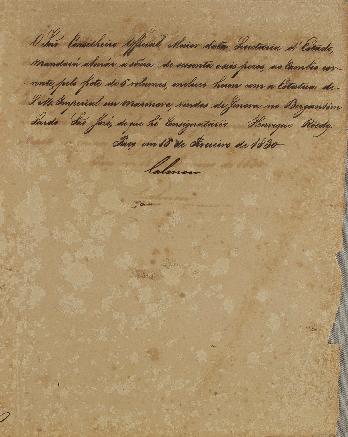 O Snr. Conselheiro Official Maior desta Secretaria d'Estado,
mandará abonar a soma de sessenta e seis pezos, ao Cambio cor-
rente, pelo frete de 5 volumes, incluso hum com a Estatua de
S. M. Imperial em marmore, vindos de Genova no Bergantim
Sardo São José, de que hé Consignatario Henrique Riedy.
Paço em 15 de Fevereiro de 1830
Calmon